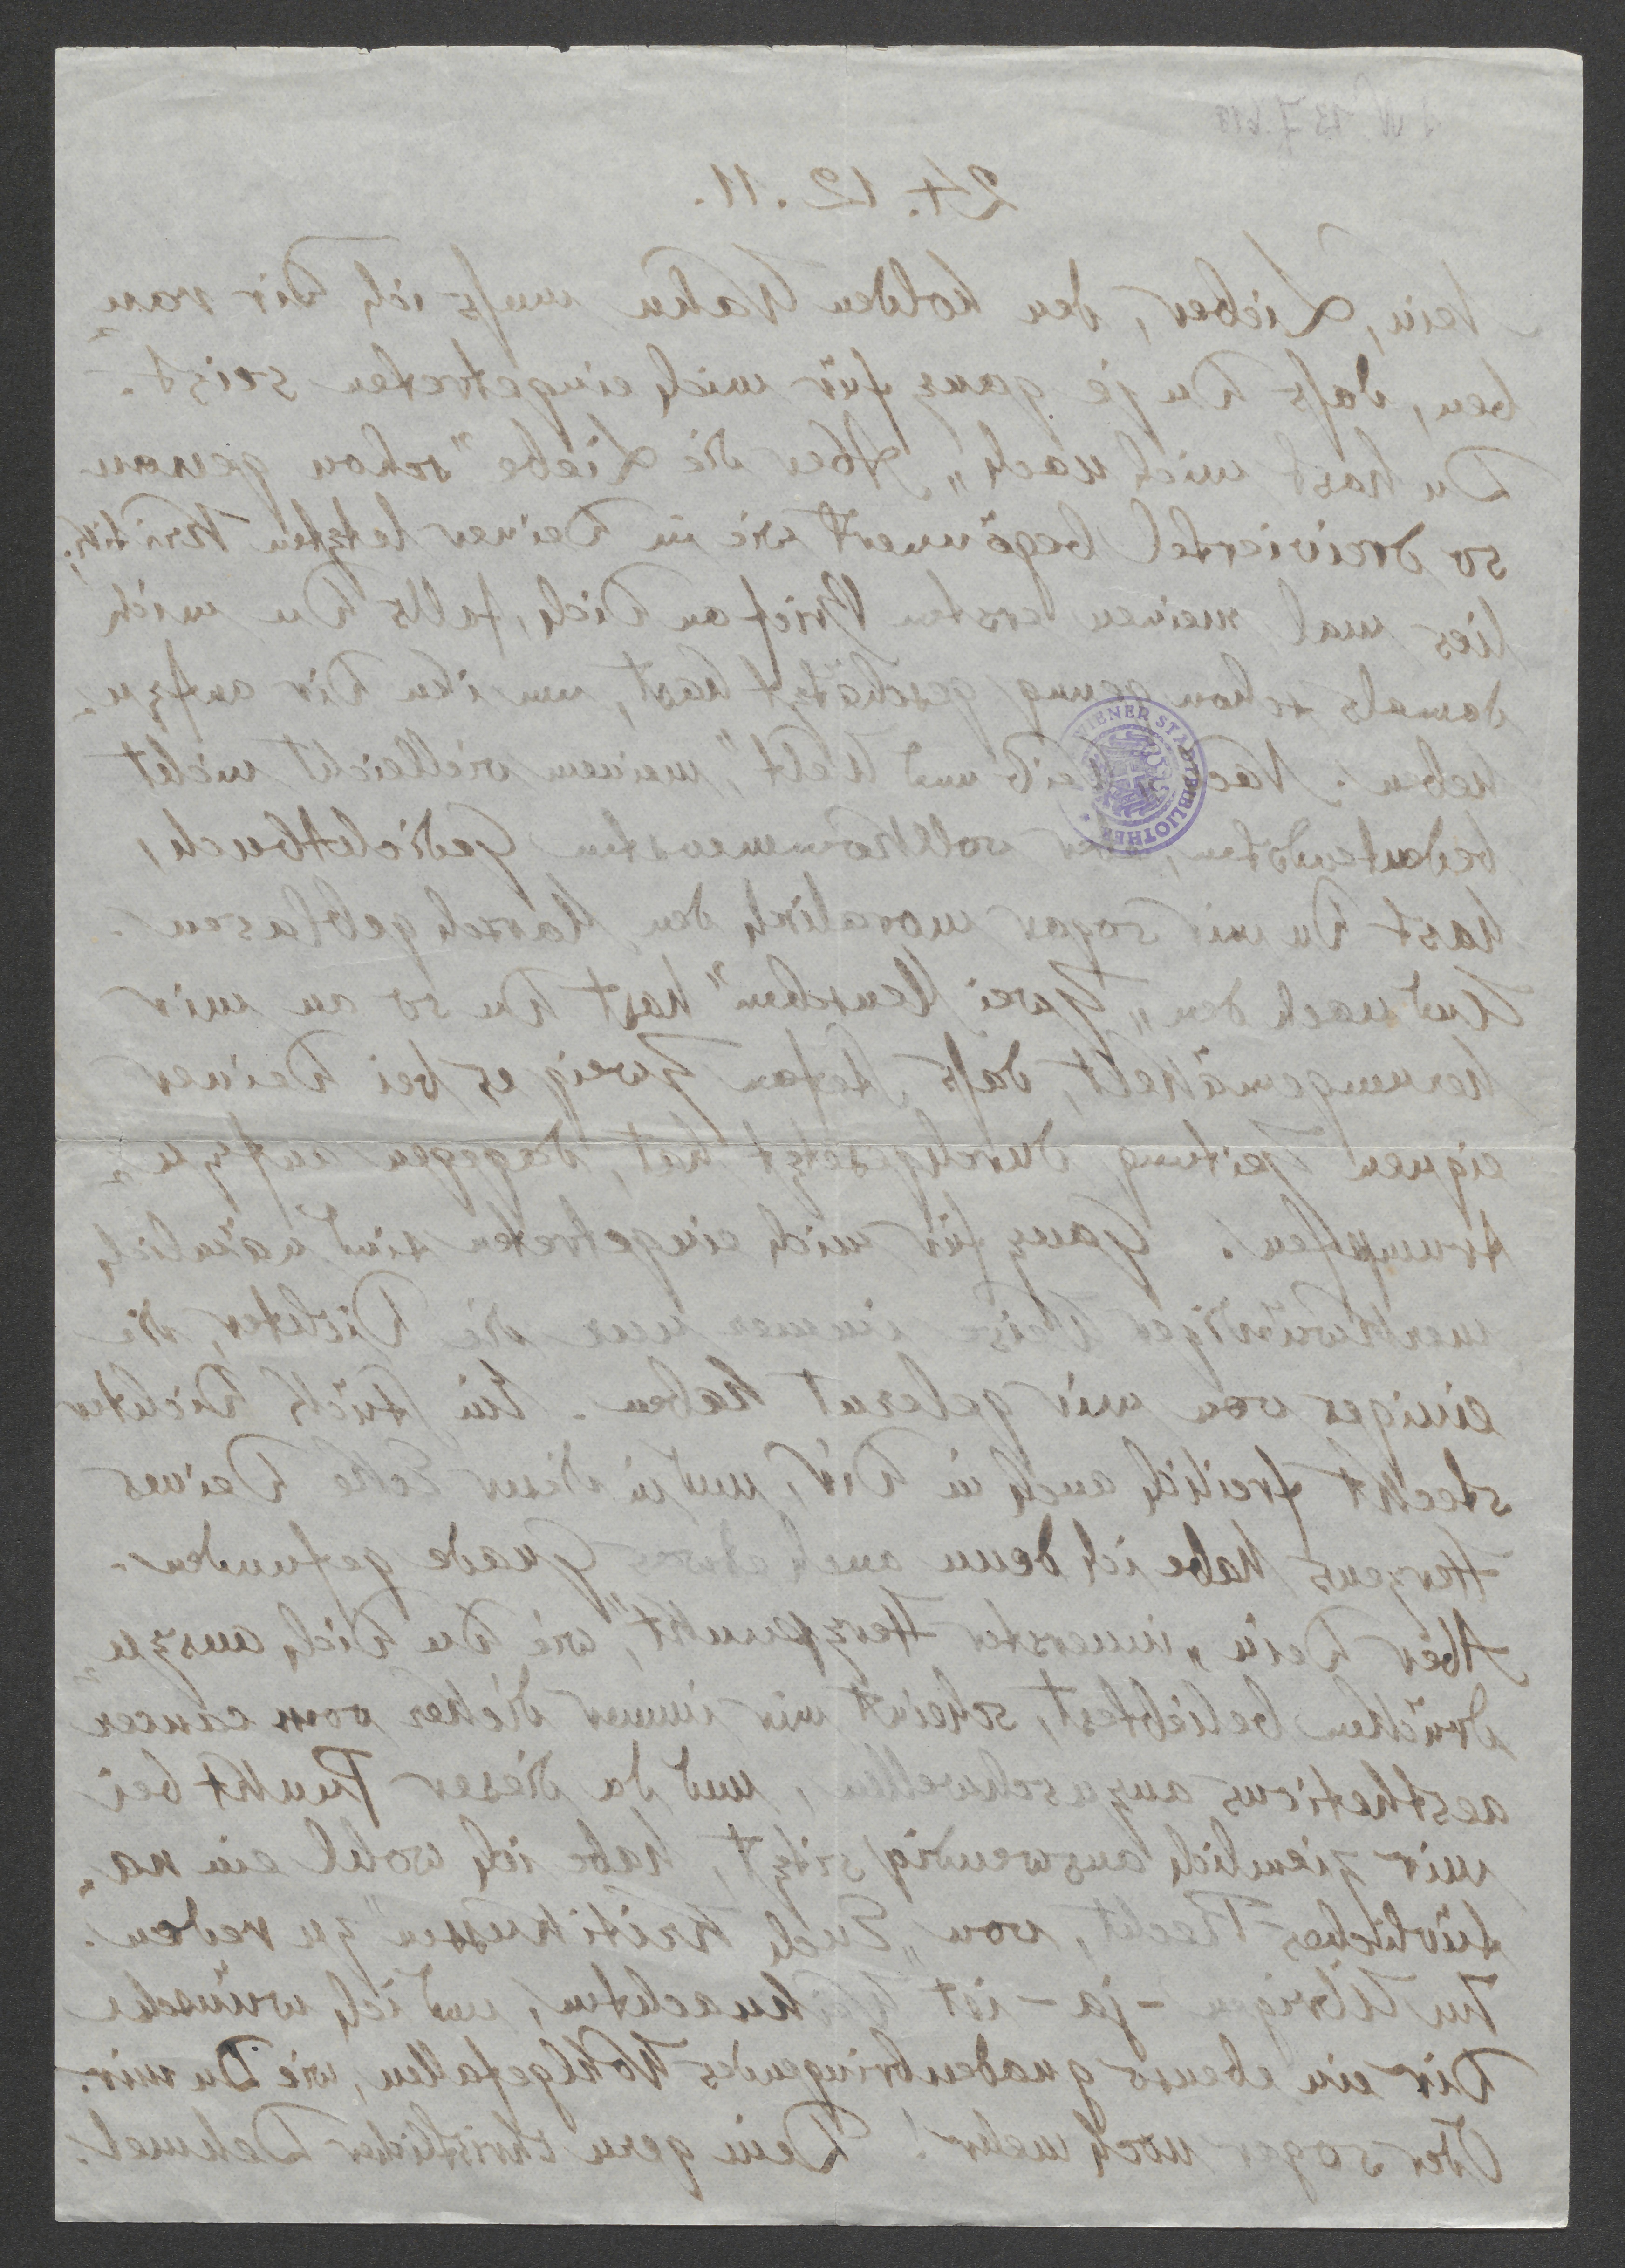 I N 137.618
24. 12. 11.
Nein, Lieber, den holden Wahn muss ich Dir rau-
ben, dass Du je ganz für mich eingetreten seist.
Du hast mich nach „Aber die Liebe" schon genau
so dreiviertel begönnert wie in Deiner letzten Kritik;
lies mal meinen ersten Brief an Dich, falls Du mich
damals schon genug geschätzt hast, um ihn Dir aufzu-
heben. Nach „Weib und Welt", meinem vielleicht nicht
bedeutendsten, aber vollkommensten Gedichtbuch,
hast Du mir sogar moralisch den Marsch geblasen.
Und nach den „Zwei Menschen" hast Du so an mir
herumgemäkelt, dass Stefan Zweig es bei Deiner
eignen Zeitung durchgesetzt hat, dagegen aufzu-
trumpfen. Ganz für mich eingetreten sind nämlich
merkwürdiger Weise immer nur die Dichter, die
einiges von mir gelernt haben. Ein Stück Dichter
steckt freilich auch in Dir, und in dieser Ecke Deines
Herzens habe ich denn auch etwas Gnade gefunden.
Aber Dein „innerster Herzpunkt", wie Du Dich auszu-
drücken beliebtest, scheint mir immer dicker vom cancer
aestheticus anzuschwellen, und da dieser Punkt bei
mir ziemlich auswendig sitzt, habe ich wohl ein na-
türliches Recht, von „Euch Kritikussen" zu reden.
Im Übrigen - ja - ist Weihnachten, und ich wünsche
Dir ein ebenso gnadenbringendes Wohlgefallen, wie Du mir.
Oder sogar noch mehr! Dein gern christlicher Dehmel.
WIENER STADTBIBLIOTHEK